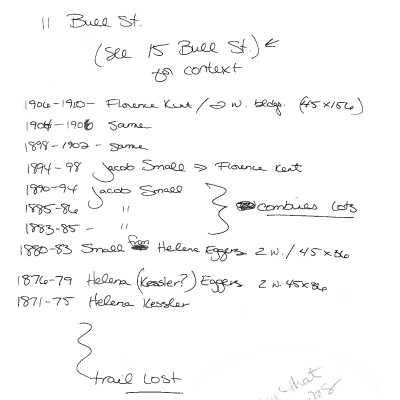 11 Bull St.
(See 15 Bull St.) ←
for context
1906-1910- Florence Kent / → W. bldg. (45x156)
1904-1906 Same
1898-1902 - Same
1894-98 Jacob Small → Florence Kent
1890-94 Jacob Small
1885-86 " combines lots
1883-85 - "
1880-83 Small from Helena Eggers 2 W. / 45x86
1876-79 Helena (Kessler?) Eggers 2 W. 45x86
1871-75 Helena Kessler
trail lost
that